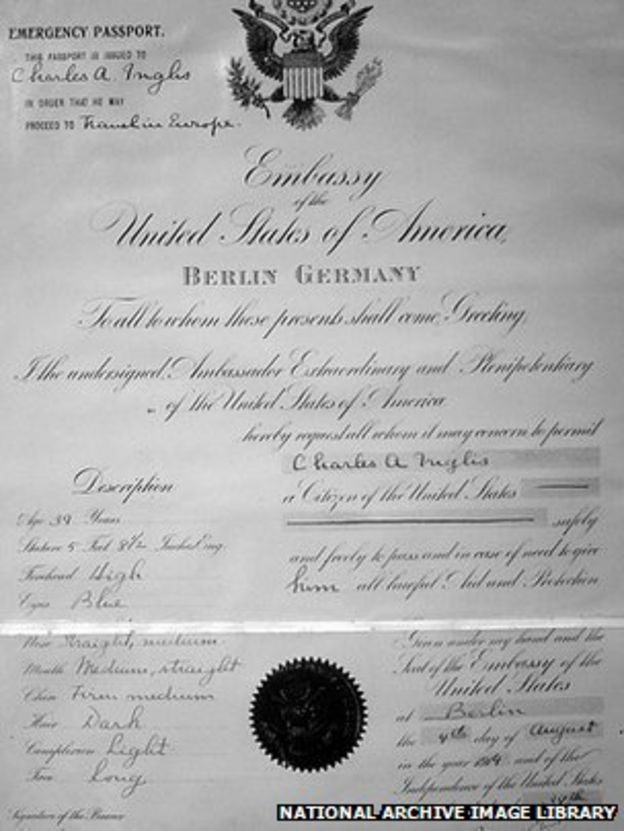 EMERGENCY PASSPORT.
THIS PASSPORT IS ISSUED TO
Charles A. Inglis
IN ORDER THAT HE MAY
PROCEED TO Travel in Europe.
Embassy
of the
United States of America,
BERLIN GERMANY
To all to whom these presents shall come, Greeting,
I the undersigned, Ambassador Extraordinary and Plenipotentiary
of the United States of America
hereby request all whom it may concern to permit
Charles A Inglis
Description
a Citizen of the United States
Age 39 Years
safely
Stature 5 Feet 8½ Inches Eng.
and freely to pass and in case of need to give
Forehead High
him all lawful Aid and Protection
Eyes Blue
Nose Straight, medium
Given under my hand and the
Mouth Medium, straight
Seal of the Embassy of the
Chin Firm medium
United States
Hair Dark
at Berlin
Complexion Light
the 4th day of August
Face long
in the year 1914 and of the
Independence of the United States
Signature of the Bearer
NATIONAL ARCHIVE IMAGE LIBRARY